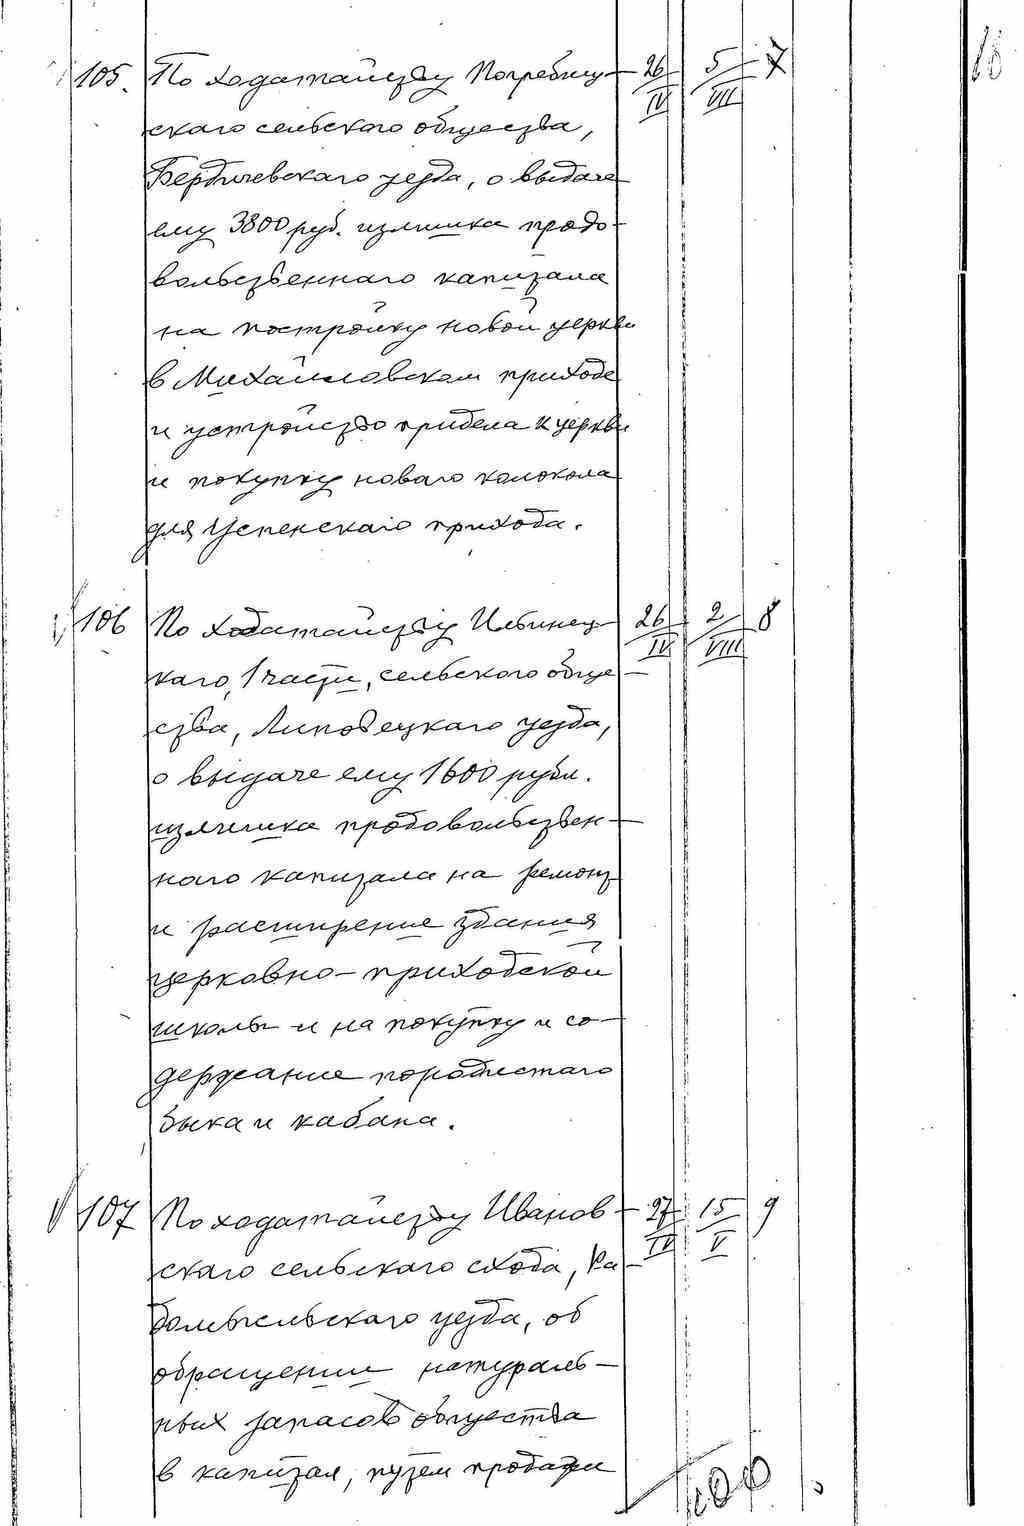 18
105. По ходатайству Погребищ- 26/IV 5/VII 7
скаго сельского общества,
Бердичевскаго уезда, о выдаче
ему 3800 руб. излишка продо-
вольственнаго капитала
на постройку новой церкви
в Михайловском приходе
и устройство придела к церкви
и покупку новаго колокола
для Успенскаго прихода.
106 По ходатайству Ильинец- 26/IV 2/VIII 8
каго, 1 части, сельского обще-
ства, Липовецкаго уезда,
о выдаче ему 1600 рубл.
излишка продовольствен-
ного капитала на ремонт
и расширение здания
церковно-приходской
школы и на покупку и со-
держание породистаго
быка и кабана.
107 По ходатайству Иванов- 27/IV 15/V 9
скаго сельскаго схода, Ра-
домысльскаго уезда, об
обращении натураль-
ных запасов общества
в капитал, путем продажи